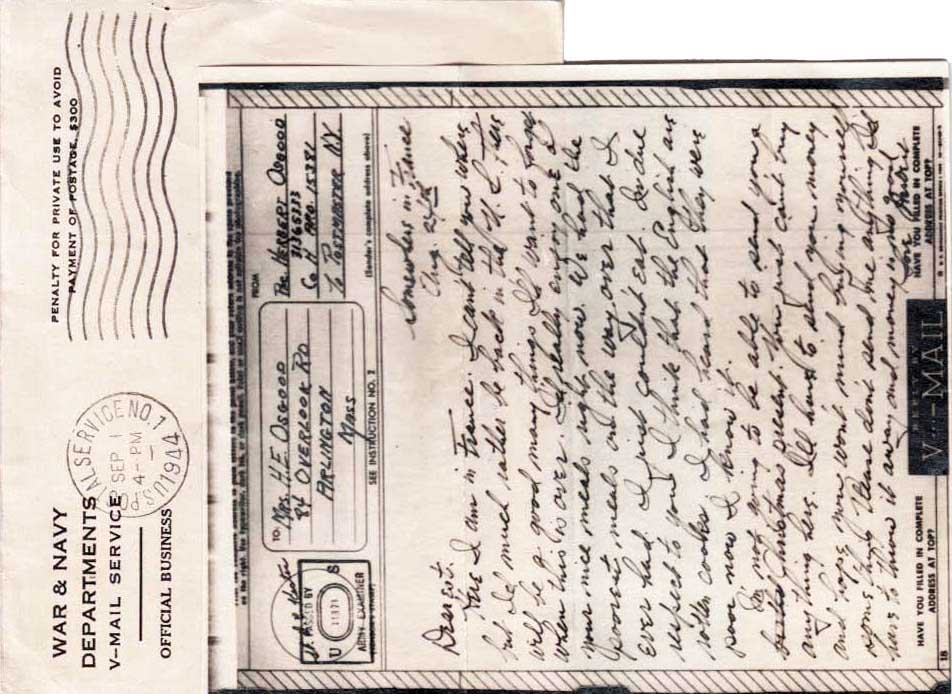 WAR & NAVY
DEPARTMENTS
V-MAIL SERVICE
OFFICIAL BUSINESS
ALSERVICE NO.1
SEP 1
4-PM
1944
U.S.
PENALTY FOR PRIVATE USE TO AVOID
PAYMENT OF POSTAGE, $300
PASSED BY
U S
ARMY EXAMINER
TO
Mrs. H.E. OSGOOD
84 OVERLOOK RD
ARLINGTON
Mass
FROM
Pvc HERBERT OSGOOD
31365333
Co M APO 15381
℅ POSTMASTER NY
(Sender's complete address above)
SEE INSTRUCTION NO. 2
Somewhere in France
Aug. 24th
Dearest:
Yes I am in France. I can't tell you where
but I'd much rather be back in the U.S. There
will be a good many things I'll want to forget
when this is over. I'd really enjoy one of
your nice meals right now. We had the
poorest meals on the way over that I
ever had. I just couldn't eat. In due
respect to you I think that the English are
rotten cooks. I had heard that they were
poor now I know it.
I'm not going to be able to send you a
Christmas present. You just can't buy
anything here. I'll have to send you money
and hope you won't mind buying yourself
something. Please don't send me anything I'd
have to throw it away and money is no good
Love
HAVE YOU FILLED IN COMPLETE
ADDRESS AT TOP?
V···-MAIL
HAVE YOU FILLED IN COMPLETE
ADDRESS AT TOP?